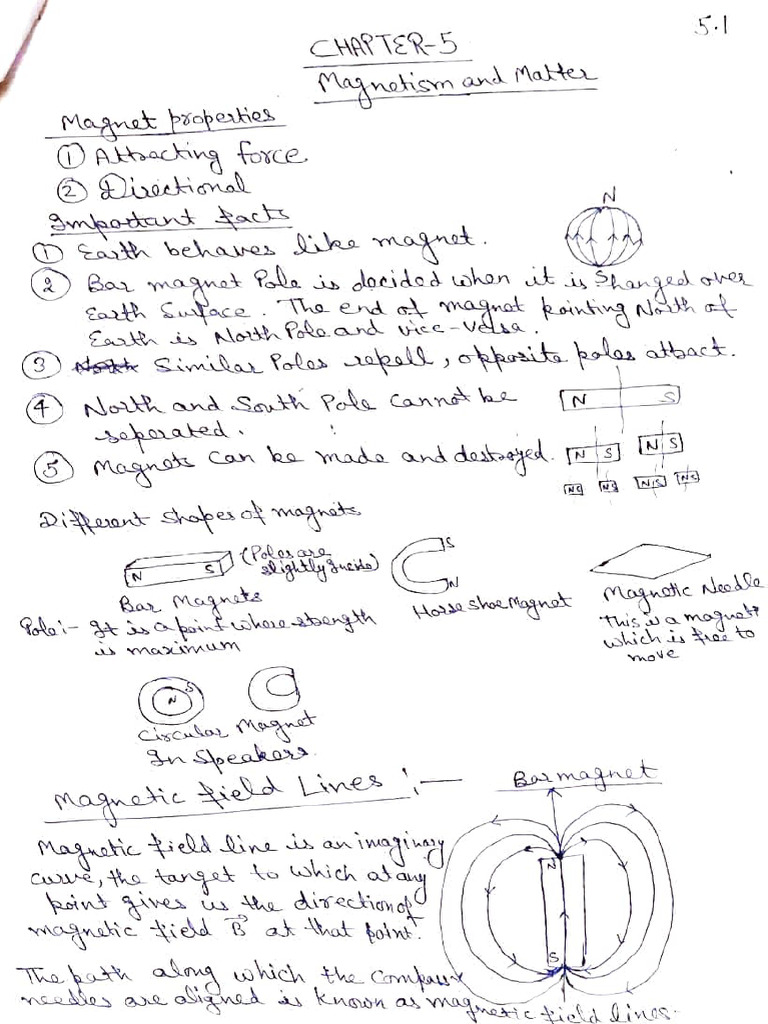 5.1
CHAPTER-5
Magnetism and Matter
Magnet properties
① Attracting force.
② Directional
Important facts
N
① Earth behaves like magnet.
② Bar magnet Pole is decided when it is hanged over
Earth Surface. The end of magnet pointing North of
Earth is North Pole and vice-versa.
③ Similar Poles repell, opposite poles attract.
④ North and South Pole cannot be
seperated.
N S
⑤ Magnets can be made and destroyed.
N S N S
N S N S N S N S
Different shapes of magnets
N S
(Poles are
slightly inside)
Bar Magnets
S
N
Horse shoe Magnet
Magnetic Needle
This is a magnet
which is free to
move
Pole:- It is a point where strength
is maximum
N S
Circular Magnet
In Speakers.
Magnetic field Lines :—
Bar magnet
N
S
Magnetic field line is an imaginary
curve, the tanget to which at any
point gives us the direction of
magnetic field B⃗ at that point.
The path along which the compass
needles are aligned is known as magnetic field lines.